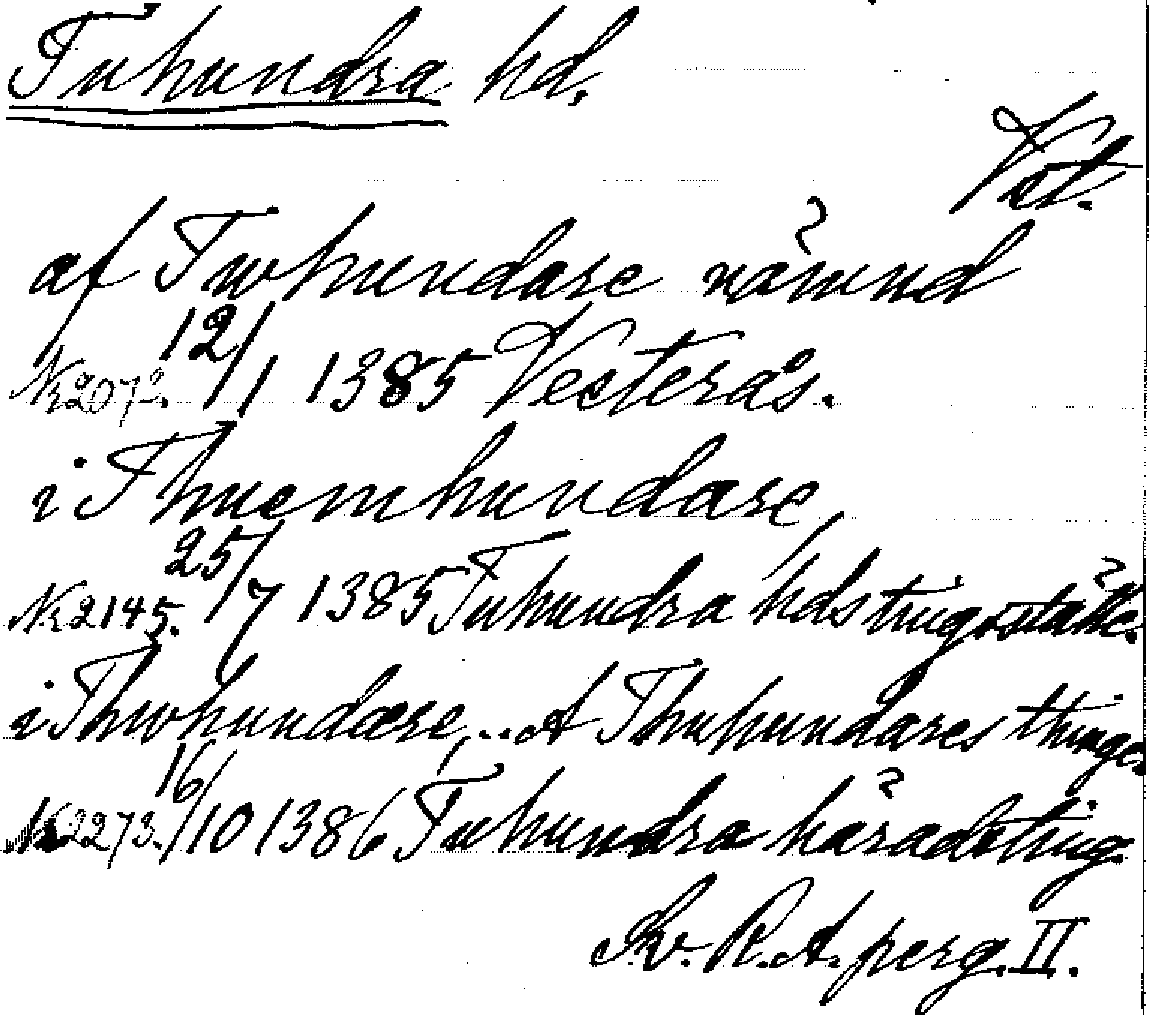 Tuhundra hd.
Vstl.
af Twhundare nämnd
12/1 1385 Vesterås.
i Thuemhundare,
N:2145. 25/7 1385 Tuhundra hds tingsställe.
i Thwhundære,... A Thuhundares thinge
N:2273. 16/10 1386 Tuhundra häradsting.
Sv. R. A. perg. II.